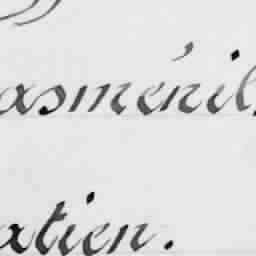 asménil
atien.